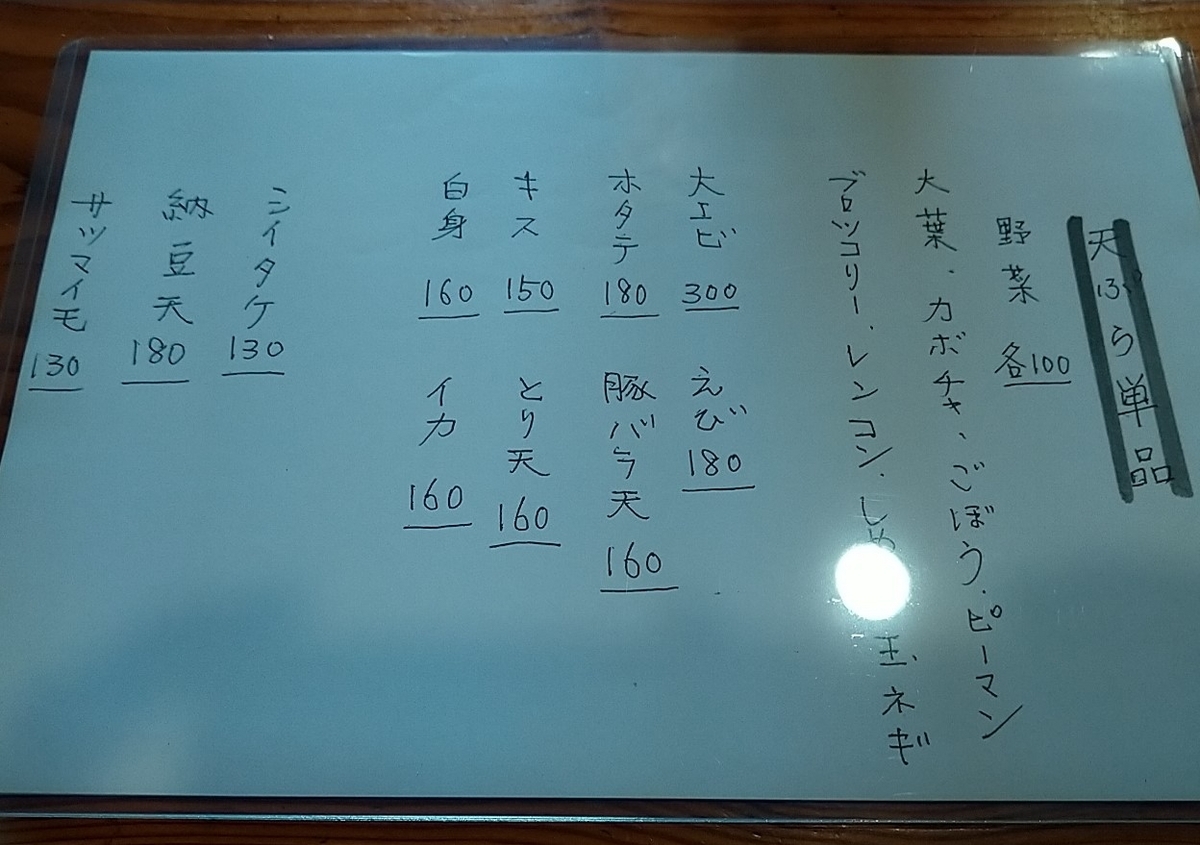 天ぷら単品
野菜 各100
大葉・カボチャ、ごぼう・ピーマン
ブロッコリー・レンコン・しめ 玉ネギ
大エビ 300
えび 180
ホタテ 180
豚バラ天 160
キス 150
とり天 160
白身 160
イカ 160
シイタケ 130
納豆天 180
サツマイモ 130